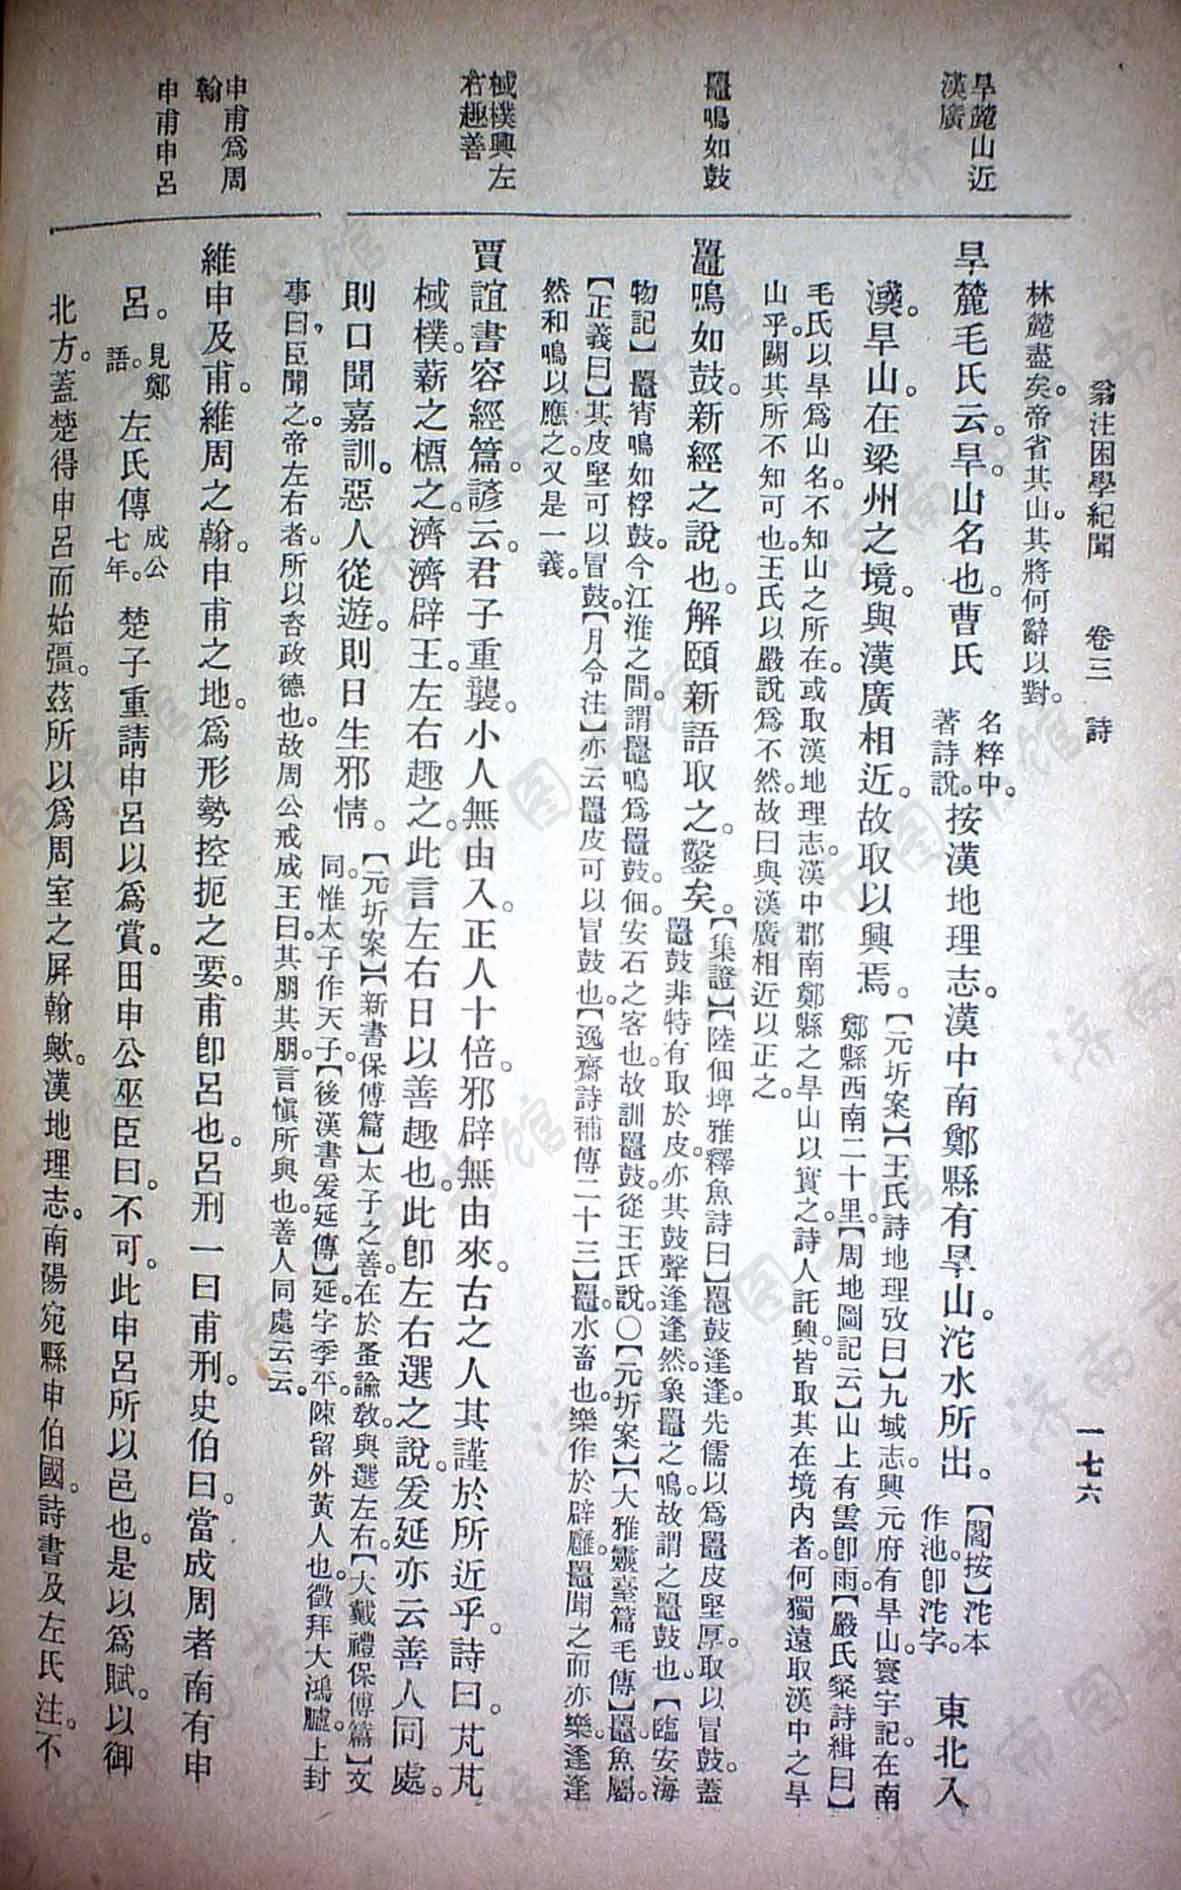 翁注困學紀聞　卷三　詩　一七六
旱麓山近
漢廣
鼉鳴如鼓
棫樸興左
右趣善
申甫爲周
翰
申甫申呂
林麓盡矣。帝省其山。其將何辭以對。
旱麓毛氏云。旱。山名也。曹氏名粹中。著詩說。按漢地理志。漢中南鄭縣有旱山。沱水所出。【閻按】沱本作池。卽沱字。東北入
漢。旱山。在梁州之境。與漢廣相近。故取以興焉。【元圻案】【王氏詩地理攷曰】九域志。興元府有旱山。寰宇記。在南
鄭縣西南二十里。【周地圖記云】山上有雲卽雨。【嚴氏粲詩緝曰】
毛氏以旱爲山名。不知山之所在。或取漢地理志。漢中郡南鄭縣之旱山以實之。詩人託興。皆取其在境內者。何獨遠取漢中之旱
山乎。闕其所不知可也。王氏以嚴說爲不然。故曰與漢廣相近以正之。
鼉鳴如鼓。新經之說也。解頤新語取之。鑿矣。【集證】【陸佃埤雅釋魚詩曰】鼉鼓逢逢。先儒以爲鼉皮堅厚。取以冒鼓。蓋
鼉鼓非特有取於皮。亦其鼓聲逢逢然。象鼉之鳴。故謂之鼉鼓也。【臨安海
物記】鼉宵鳴如桴鼓。今江淮之間。謂鼉鳴爲鼉鼓。佃。安石之客也。故訓鼉鼓從王氏說。○【元圻案】【大雅靈臺篇毛傳】鼉。魚屬。
【正義曰】其皮堅可以冒鼓。【月令注】亦云鼉皮可以冒鼓也。【逸齋詩補傳二十三】鼉。水畜也。樂作於辟廱。鼉聞之而亦樂。逢逢
然和鳴以應之。又是一義。
賈誼書容經篇。諺云。君子重襲。小人無由入。正人十倍。邪辟無由來。古之人其謹於所近乎。詩曰。芃芃
棫樸。薪之槱之。濟濟辟王。左右趣之。此言左右日以善趣也。此卽左右選之說。爰延亦云善人同處。
則口聞嘉訓。惡人從遊。則日生邪情。【元圻案】【新書保傅篇】太子之善。在於蚤諭敎。與選左右。【大戴禮保傅篇】文
同。惟太子作天子。【後漢書爰延傳】延。字季平。陳留外黃人也。徵拜大鴻臚。上封
事曰。臣聞之。帝左右者。所以咨政德也。故周公戒成王曰。其朋其朋。言愼所與也。善人同處云云。
維申及甫。維周之翰。申甫之地。爲形勢控扼之要。甫卽呂也。呂刑一曰甫刑。史伯曰。當成周者南有申
呂。見鄭語。左氏傳成公七年。楚子重請申呂以爲賞。田申公巫臣曰。不可。此申呂所以邑也。是以爲賦。以御
北方。蓋楚得申呂而始彊。茲所以爲周室之屏翰歟。漢地理志。南陽宛縣申伯國。詩書及左氏注。不